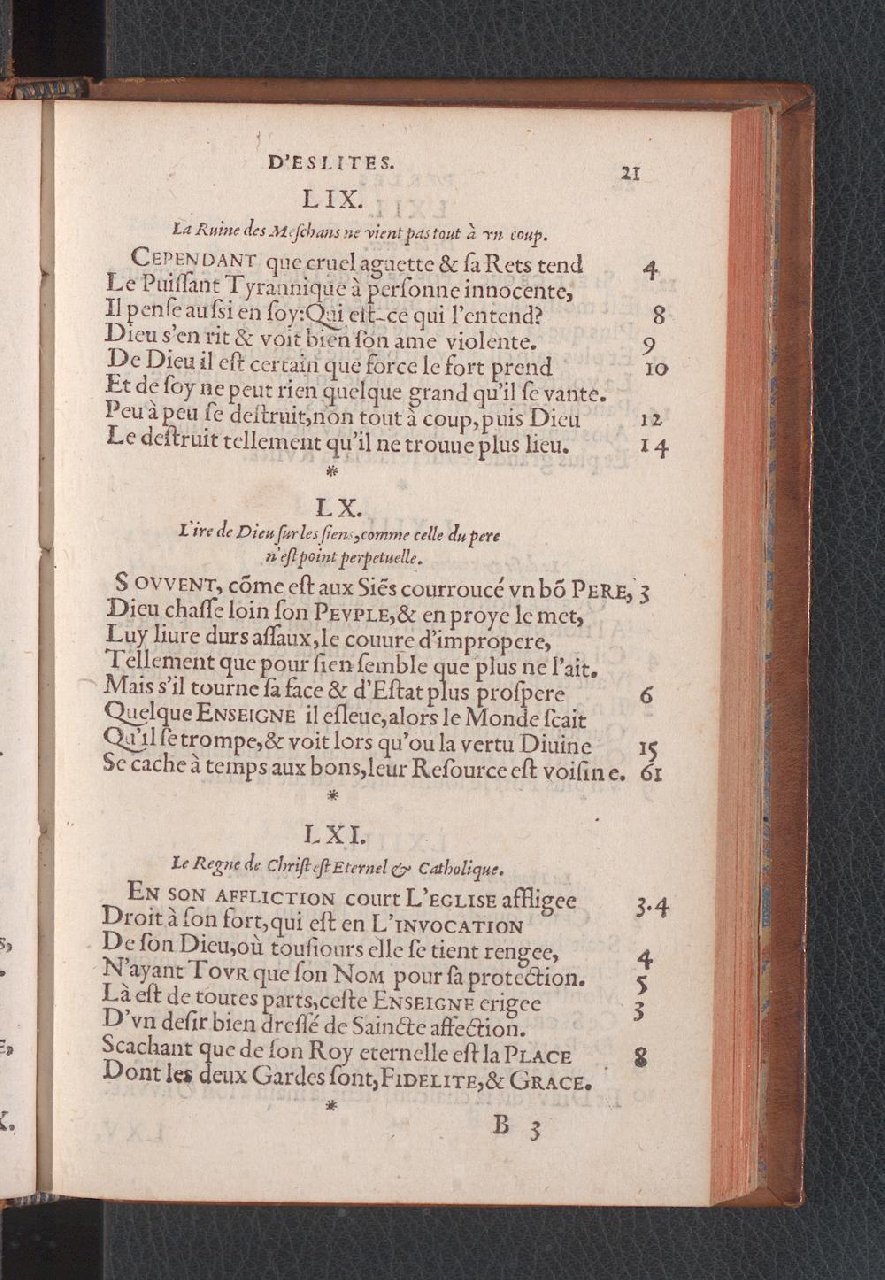 D'ESLITES. 21
LIX.
La Ruine des Meſchans ne vient pas tout à vn coup.
CEPENDANT que cruel aguette & ſa Rets tend 4
Le Puiſſant Tyrannique à perſonne innocente,
Il penſe auſsi en ſoy:Qui eſt-ce qui l'entend? 8
Dieu s'en rit & voit bien ſon ame violente. 9
De Dieu il eſt certain que force le fort prend 10
Et de ſoy ne peut rien quelque grand qu'il ſe vante.
Peu à peu ſe deſtruit,non tout à coup,puis Dieu 12
Le deſtruit tellement qu'il ne trouue plus lieu. 14
*
LX.
L'ire de Dieu ſur les ſiens,comme celle du pere
n'eſt point perpetuelle.
SOVVENT, cõme eſt aux Siẽs courroucé vn bõ PERE, 3
Dieu chaſſe loin ſon PEVPLE,& en proye le met,
Luy liure durs aſſaux,le couure d'impropere,
Tellement que pour ſien ſemble que plus ne l'ait.
Mais s'il tourne ſa face & d'Eſtat plus proſpere 6
Quelque ENSEIGNE il eſleue,alors le Monde ſcait
Qu'il ſe trompe,& voit lors qu'ou la vertu Diuine 15
Se cache à temps aux bons,leur Reſource eſt voiſine. 61
*
LXI.
Le Regne de Chriſt eſt Eternel & Catholique.
EN SON AFFLICTION court L'EGLISE affligee 3.4
Droit à ſon fort,qui eſt en L'INVOCATION
De ſon Dieu,où touſiours elle ſe tient rengee, 4
N'ayant TOVR que ſon NOM pour ſa protection. 5
Là eſt de toutes parts,ceſte ENSEIGNE erigee 3
D'vn deſir bien dreſſé de Saincte affection.
Scachant que de ſon Roy eternelle eſt la PLACE 8
Dont les deux Gardes ſont,FIDELITE,& GRACE.
*
B 3